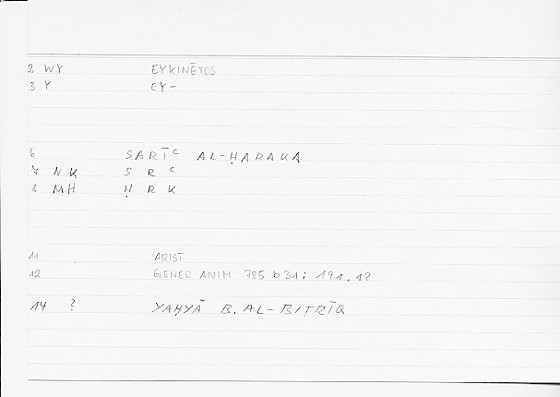 2 WY EYKINĒTOS
3 Y EY-
6 SARĪᶜ AL-ḤARAKA
7 NK S R ᶜ
8 MH Ḥ R K
11 ARIST
12 GENER ANIM 785 b31; 191.12
14 ? YAḤYĀ B. AL-BIṬRĪQ